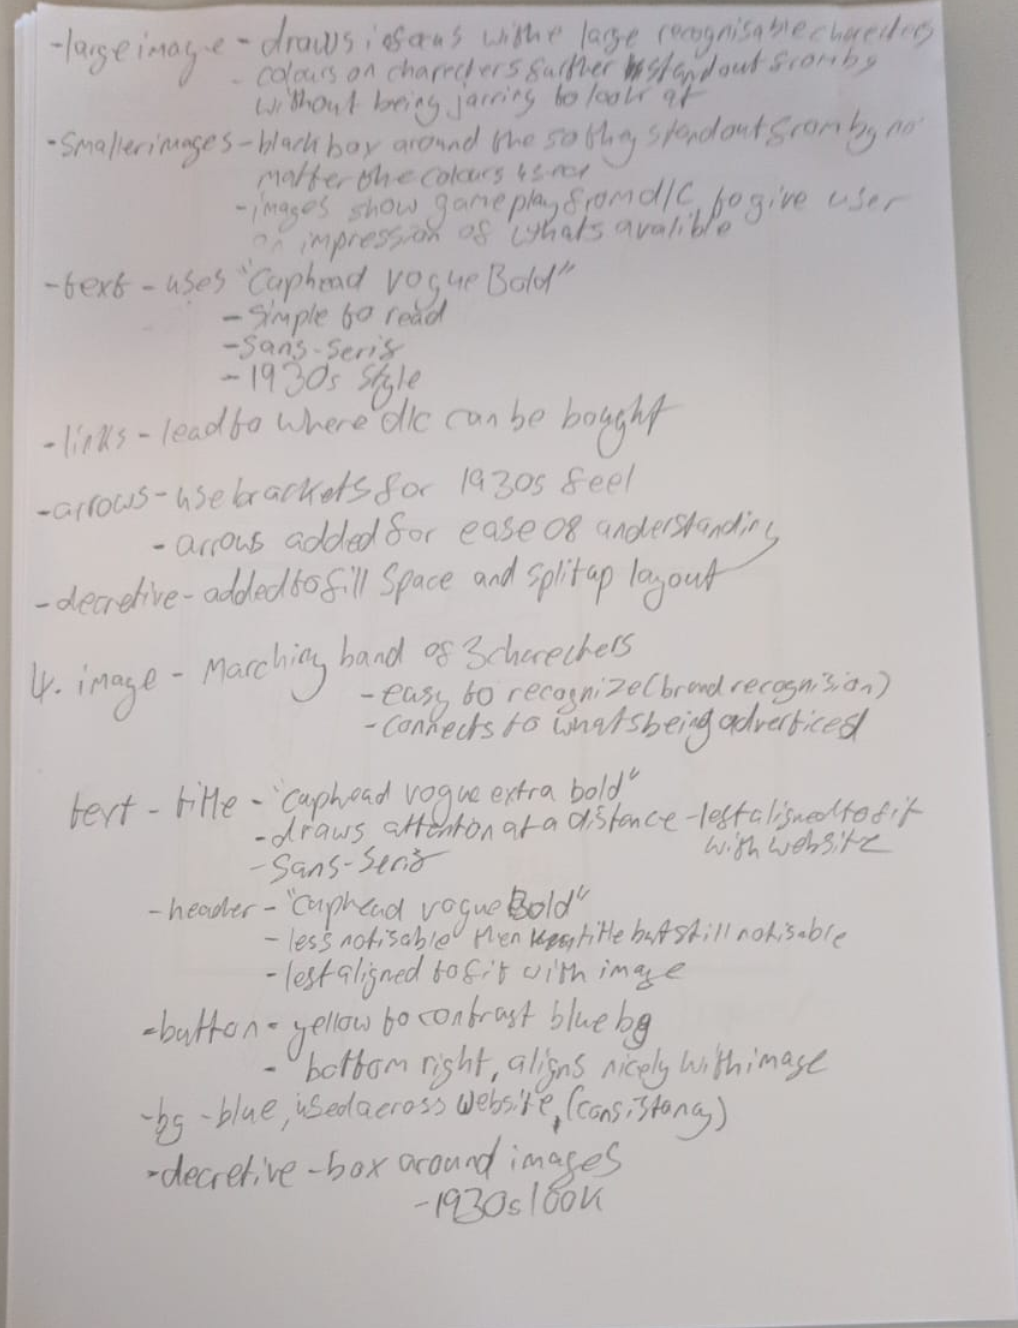 -large image - draws focus with large recognisable charecters
- colours on charecters further standout from bg
without being jarring to look at
-smaller images - black box around the so they standout from bg no
matter the colours
-images show gameplay from dlc to give user
an impression of whats avalible
-text - uses "Cuphead vogue Bold"
- simple to read
-Sans-Serif
- 1930s style
-links - lead to where dlc can be bought
-arrows - use brackets for 1930s feel
- arrows added for ease of understanding
-decretive - added to fill space and split up layout
4. image - Marching band of 3 charechers
- easy to recognize (brand recognision)
- connects to whats being adverticed
text - title - "cuphead vogue extra bold"
- draws attention at a distance - left aligned to fit
with website
- Sans-Serif
- header - "Cuphead vogue Bold"
- less notisable then title but still notisable
- left aligned to fit with image
- button - yellow to contrast blue bg
- bottom right, aligns nicely with image
-bg - blue, used across website, (consistancy)
-decretive - box around images
- 1930s look